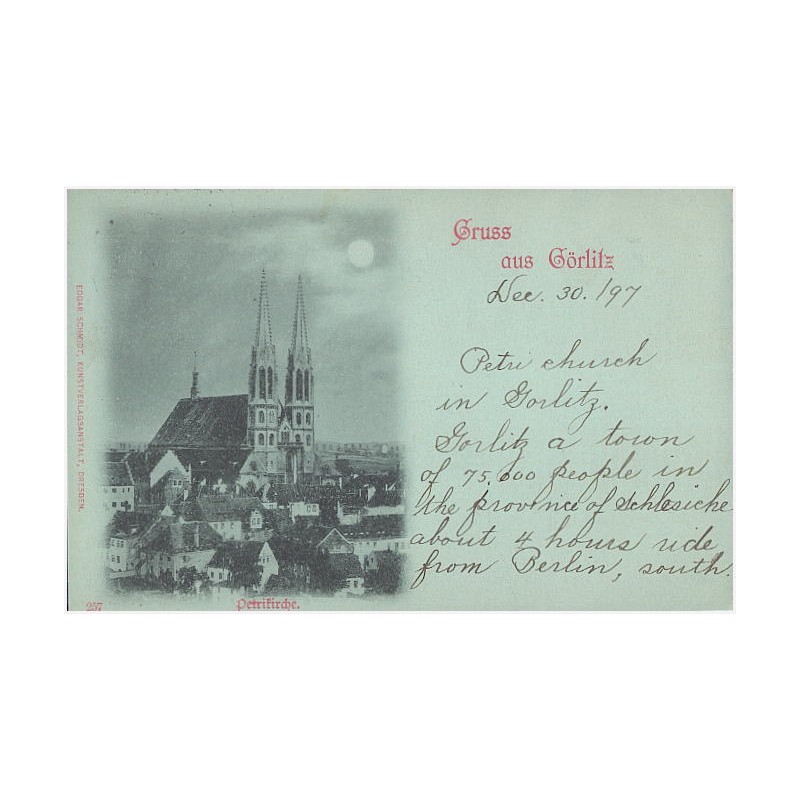 Gruss
aus Görlitz
Dec. 30. /97
Petri church
in Gorlitz.
Gorlitz a town
of 75,000 people in
the province of Schlesiche
about 4 hours ride
from Berlin, south.
EDGAR SCHMIDT, KUNSTVERLAGSANSTALT, DRESDEN.
257
Petrikirche.